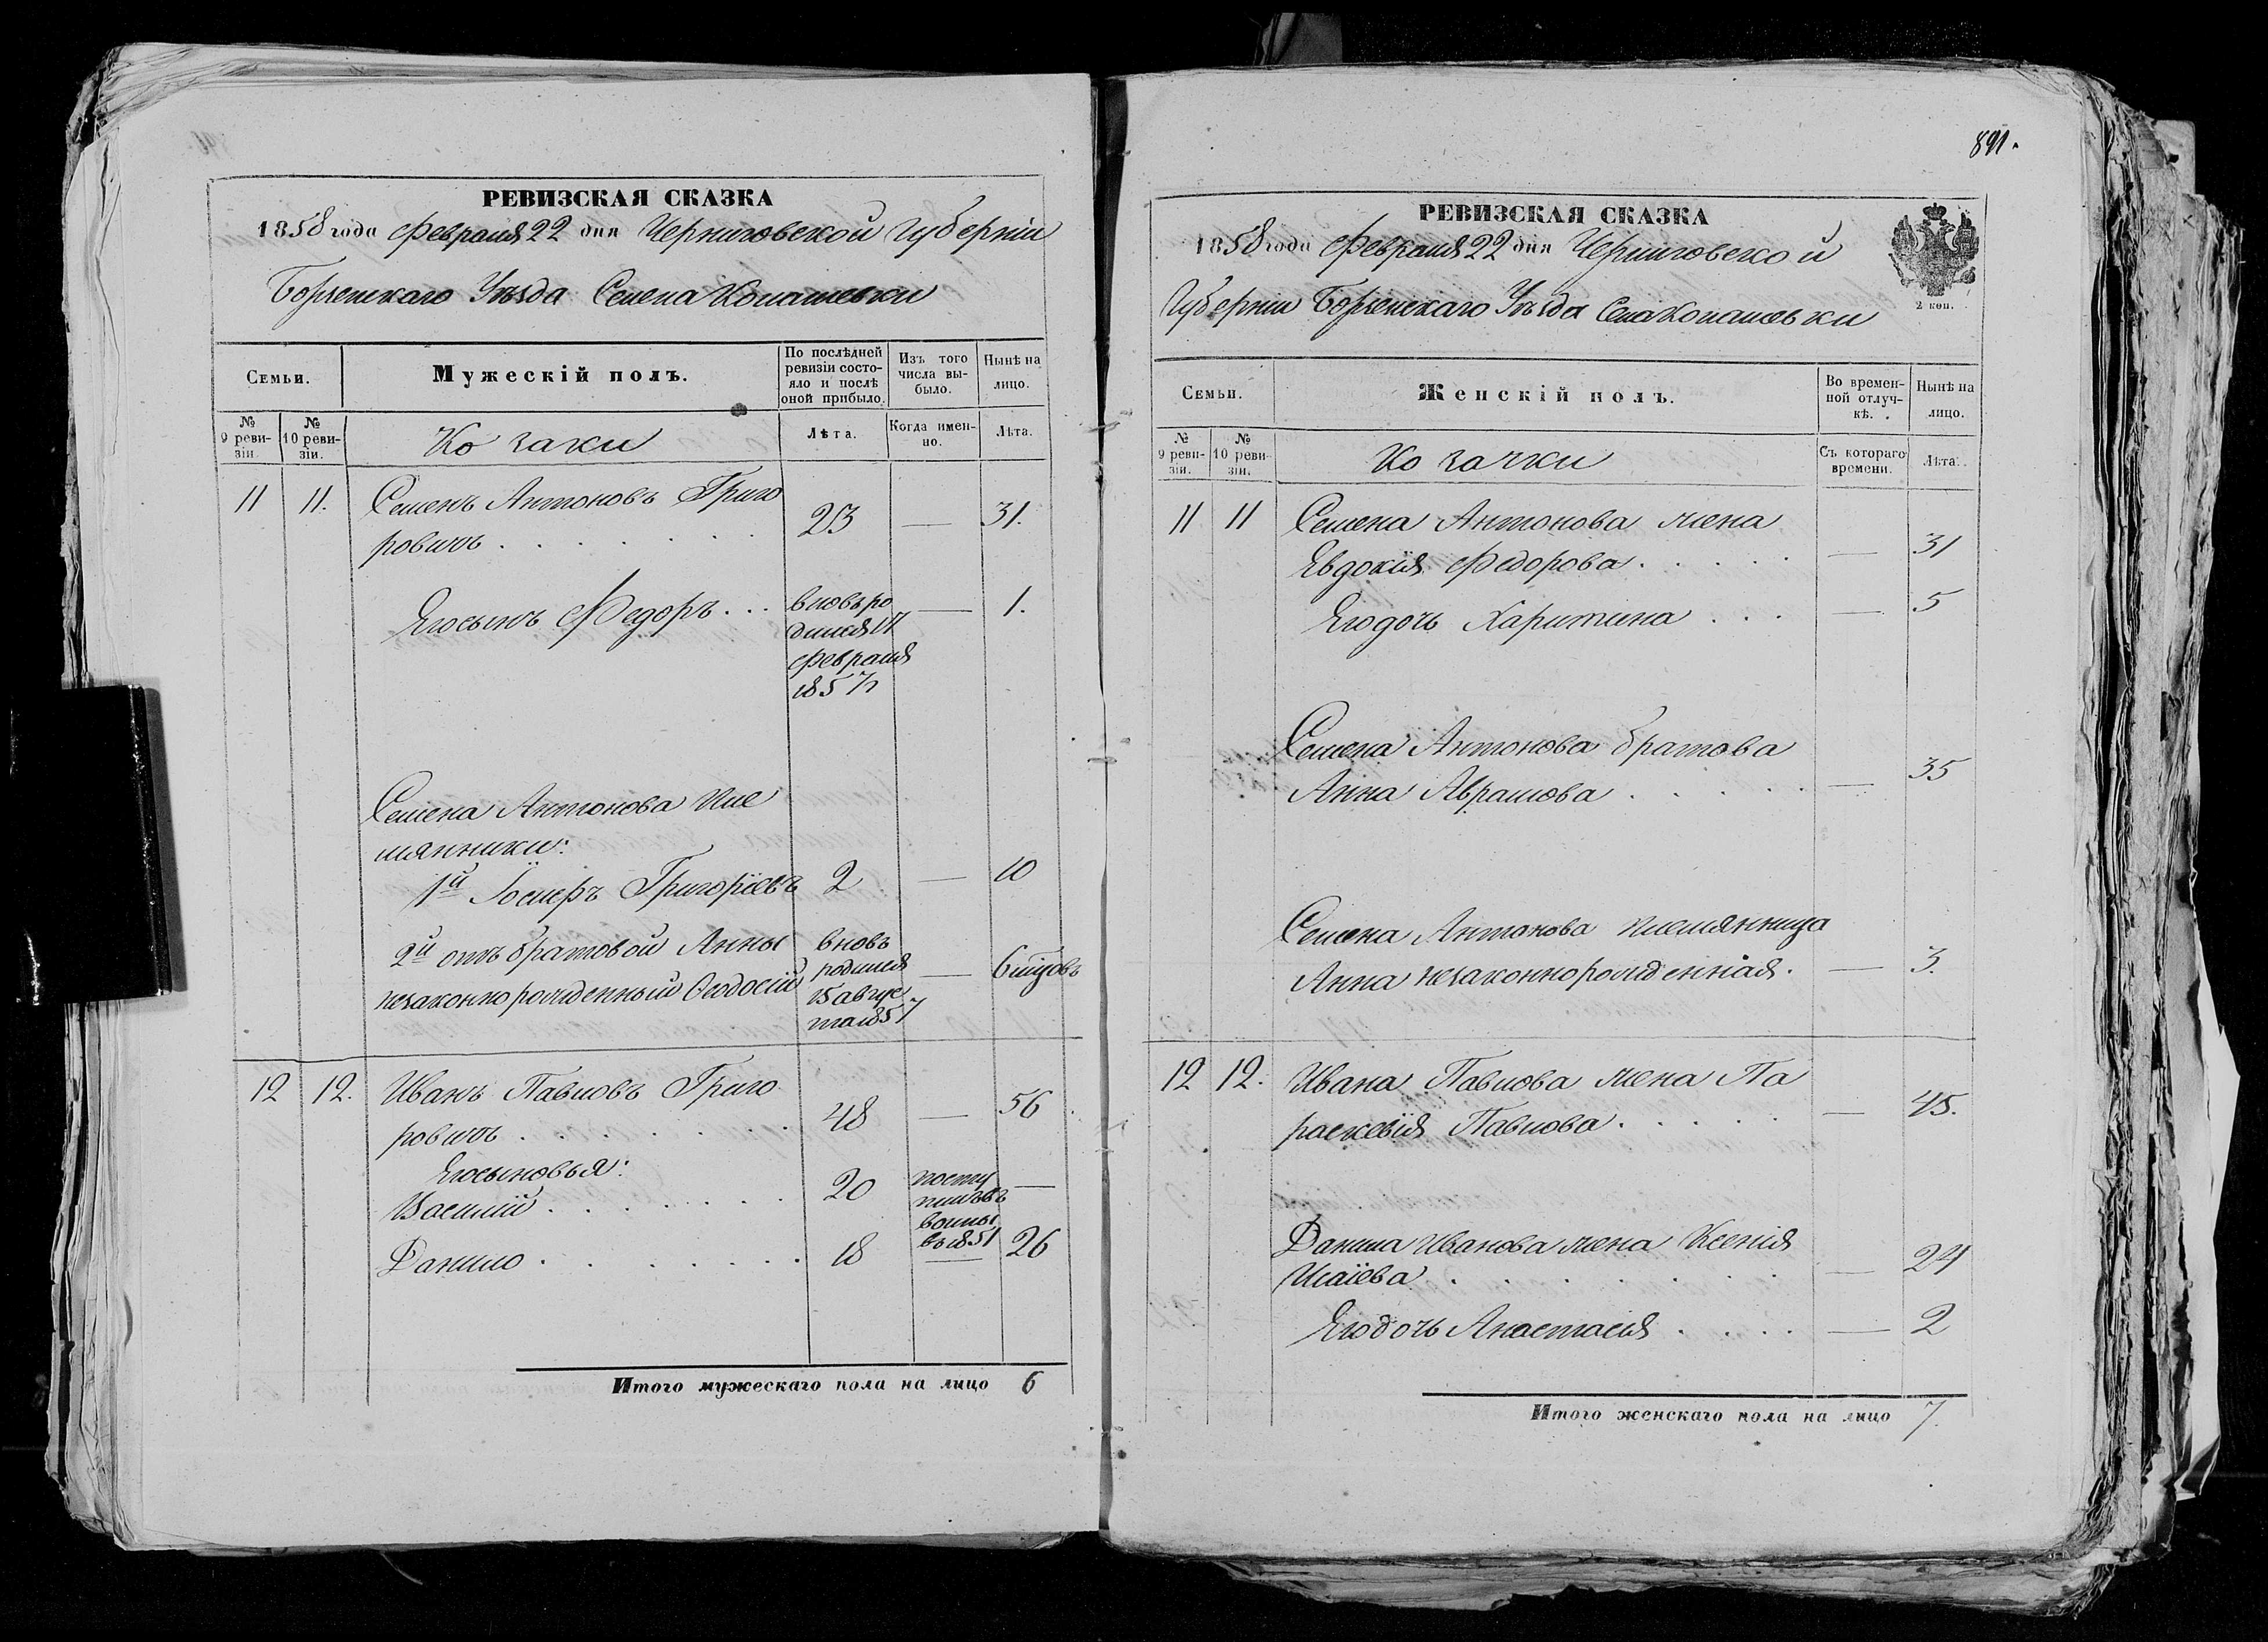 РЕВИЗСКАЯ СКАЗКА
1858 года Февраля 22 дня Черниговской Губерніи
Борзенскаго Уѣзда Селена Копашевки
Семьи.
Мужескій полъ.
По послѣдней ревизіи состояло и послѣ оной прибыло.
Изъ того числа выбыло.
Нынѣ на лицо.
№ 9 ревизіи.
№ 10 ревизіи.
Козаки
Лѣта.
Когда именно.
Лѣта.
11 11. Семенъ Антоновъ Григо
ровичъ 23 — 31.
Егосынъ Федоръ вновь ро — 1.
дился 17
февраля
1857
Семена Антонова пле
мянники:
1й Іосифъ Григорьевъ 2 — 10
2й отъ братовой Анны вновь
незаконнорожденный Ѳеодосій родился — 6 мѣсяцовъ
15 авгус
та 1857
12 12. Иванъ Павловъ Григо
ровичъ 48 — 56
Егосыновья:
Василій 20 посту —
пилъ въ
воины
въ 1851
Данило 18 — 26
Итого мужескаго пола на лицо 6
891.
РЕВИЗСКАЯ СКАЗКА
1858 года Февраля 22 дня Черниговской
Губерніи Борзенскаго Уѣзда Села Копашевки
2 коп.
Семьи.
Женскій полъ.
Во временной отлучкѣ.
Нынѣ на лицо.
№ 9 ревизіи.
№ 10 ревизіи.
Козачки
Съ котораго времени.
Лѣта.
11 11 Семена Антонова жена
Евдокія Федорова — 31
Егодочь Харитина — 5
Семена Антонова братова
Анна Авраамова — 35
Семена Антонова племянница
Анна незаконнорожденная. — 3.
12 12. Ивана Павлова жена Па
раскевія Павлова — 45.
Данила Иванова жена Ксенія
Исаіева — 24
Егодочь Анастасія — 2
Итого женскаго пола на лицо 7.